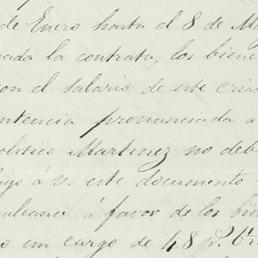 de Enero hasta el 8 de Ma
ada la contrata, los biene
on el salario de este cria
ntencia pronunciada a
Martinez no deb
á V. este documento
alcance á favor de los bi
o un cargo de 48 p.